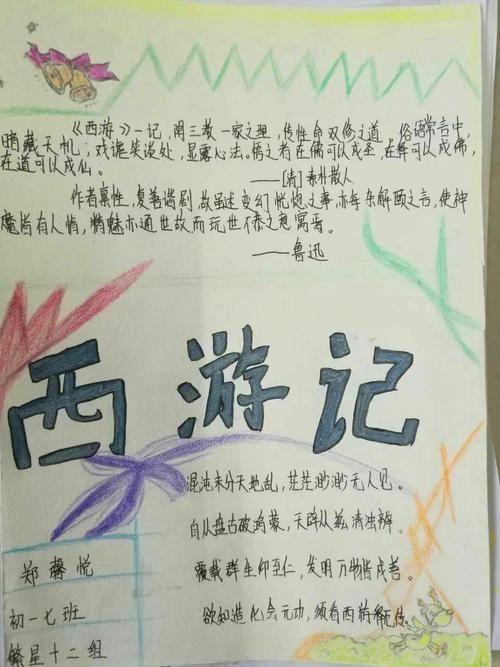 《西游》一记,阐三教一家之理,传性命双修之道。俗语常言中,
暗藏天机;戏谑笑谈处,显露心法。悟之者在儒可以成圣,在释可以成佛,
在道可以成仙。
——[清]素朴散人
作者禀性,复善谐剧,故虽述变幻恍惚之事,亦每杂解颐之言,使神
魔皆有人情,精魅亦通世故而玩世不恭之意寓焉。
——鲁迅
西游记
混沌未分天地乱,茫茫渺渺无人见。
自从盘古破鸿蒙,天辟从兹清浊辨。
覆载群生仰至仁,发明万物皆成善。
欲知造化会元功,须看西游释厄传。
郑馨悦
初一七班
繁星十二组